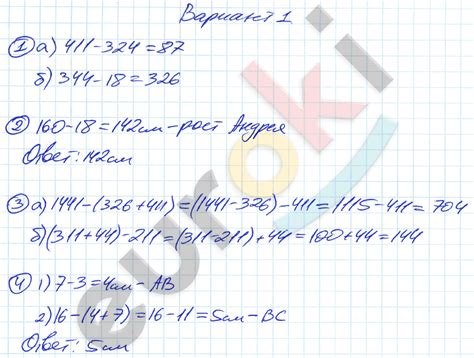 Вариант 1
① а) 411-324=87
б) 344-18=326
② 160-18=142см-рост Андрея
Ответ: 142см
③ а) 1441-(326+411)=(1441-326)-411=1115-411=704
б) (311+44)-211=(311-211)+44=100+44=144
④ 1) 7-3=4см-АВ
2) 16-(4+7)=16-11=5см-ВС
Ответ: 5см
euroki